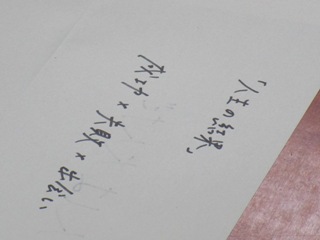 「人生の結果」
成功 × 失敗 × 出会い